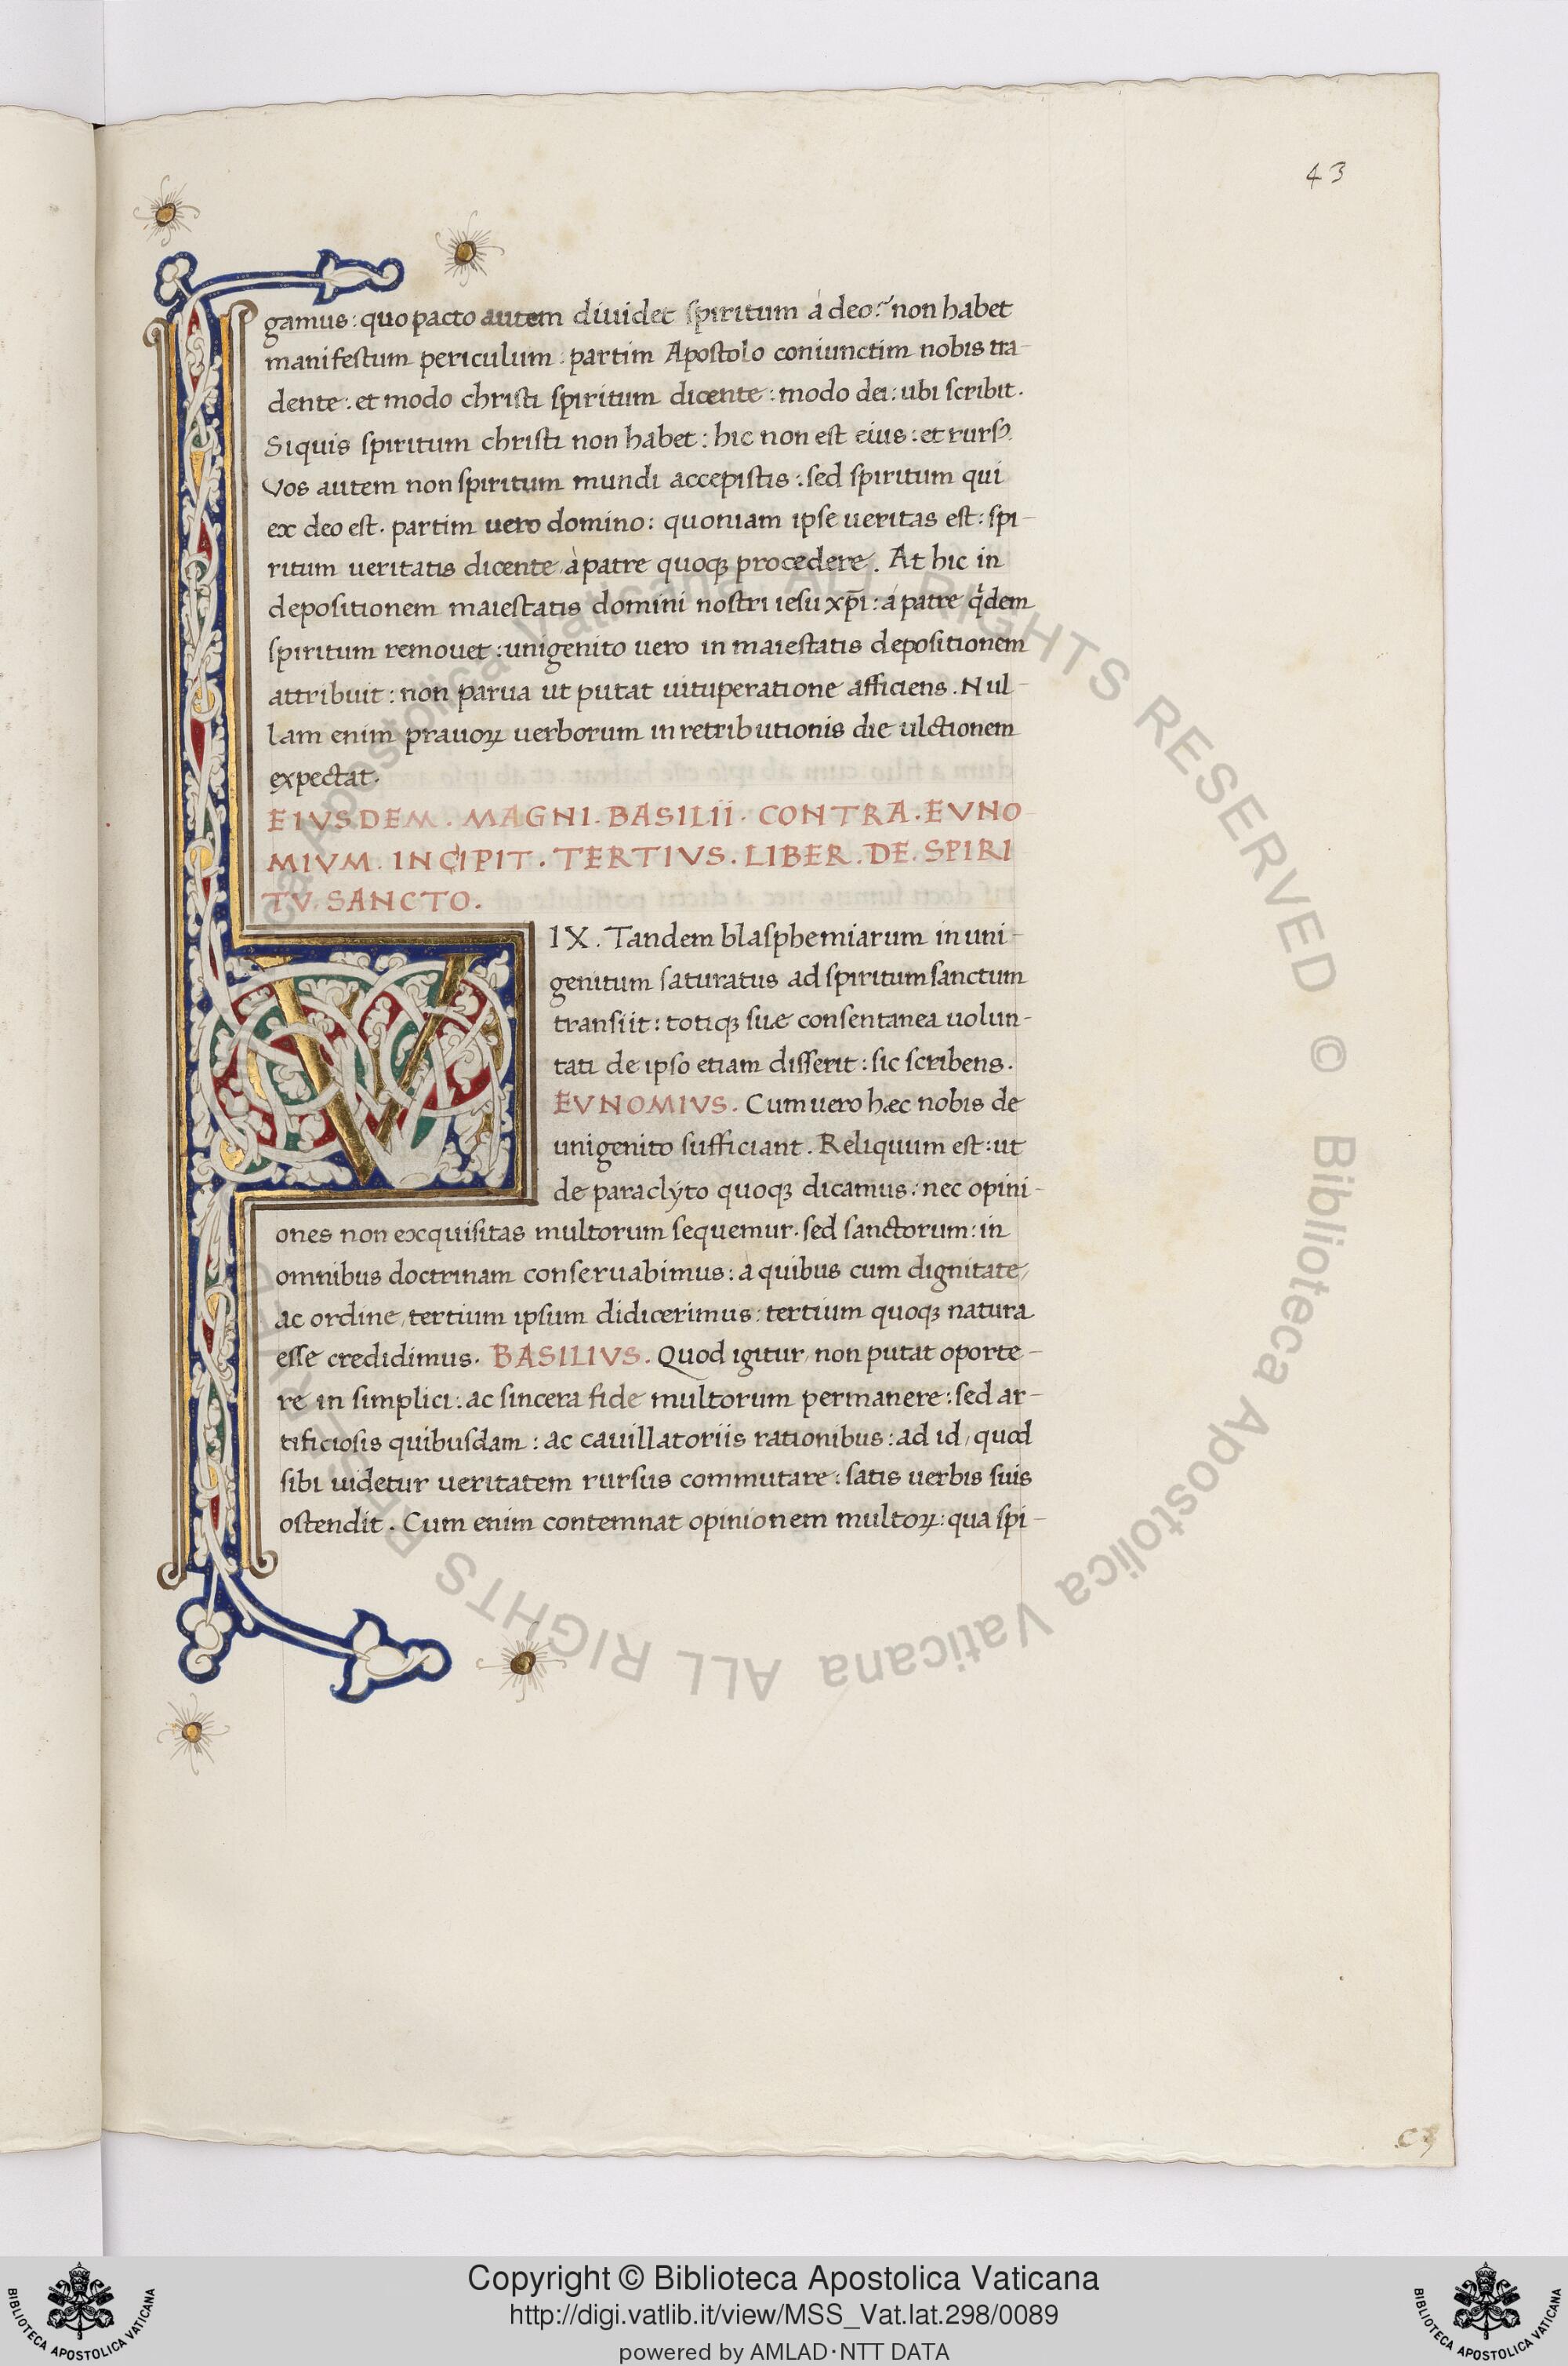 43
gamus: quo pacto autem diuidet spiritum á deo? non habet
manifestum periculum: partim Apostolo coniunctim nobis tra-
dente: et modo christi spiritum dicente: modo dei: ubi scribit.
Siquis spiritum christi non habet: hic non est eius: et rursꝰ.
Vos autem non spiritum mundi accepistis: sed spiritum qui
ex deo est. partim uero domino: quoniam ipse ueritas est: spi-
ritum ueritatis dicente, à patre quoqꝫ procedere. At hic in
depositionem maiestatis domini nostri iesu xp̄i: á patre qͥdem
spiritum remouet: unigenito uero in maiestatis depositionem
attribuit: non parua ut putat uituperatione afficiens. Nul-
lam enim prauoꝝ uerborum in retributionis die ulctionem
expectat.
EIVSDEM. MAGNI. BASILII. CONTRA. EVNO
MIVM. INCIPIT. TERTIVS. LIBER. DE. SPIRI
TV. SANCTO.
VIX. Tandem blasphemiarum in uni-
genitum saturatus ad spiritum sanctum
transiit: totiqꝫ suæ consentanea uolun-
tati de ipso etiam disserit: sic scribens.
EVNOMIVS. Cum uero hæc nobis de
unigenito sufficiant. Reliquum est: ut
de paraclyto quoqꝫ dicamus: nec opini-
ones non excquisitas multorum sequemur. sed sanctorum: in
omnibus doctrinam conseruabimus: à quibus cum dignitate,
ac ordine, tertium ipsum didicerimus: tertium quoqꝫ natura
esse credidimus. BASILIVS. Quod igitur, non putat oporte-
re in simplici: ac sincera fide multorum permanere: sed ar-
tificiosis quibusdam: ac cauillatoriis rationibus: ad id, quod
sibi uidetur ueritatem rursus commutare: satis uerbis suis
ostendit. Cum enim contemnat opinionem multoꝝ: qua spi-
c3
Biblioteca Apostolica Vaticana ALL RIGHTS RESERVED © Biblioteca Apostolica Vaticana ALL RIGHTS RESERVED
Copyright © Biblioteca Apostolica Vaticana
http://digi.vatlib.it/view/MSS_Vat.lat.298/0089
powered by AMLAD·NTT DATA
BIBLIOTECA APOSTOLICA VATICANA
BIBLIOTECA APOSTOLICA VATICANA